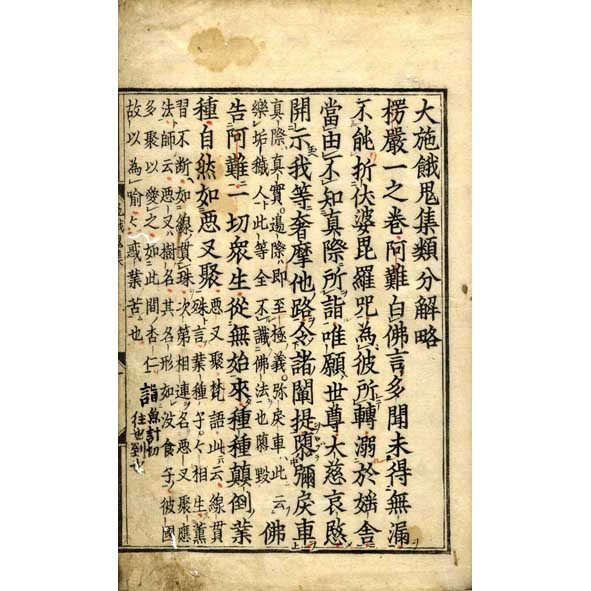 大施餓鬼集類分解略
楞嚴一之卷阿難白佛言多聞未得無漏
不能折伏婆毘羅咒為彼所轉溺於婬舍
當由不知真際所詣唯願世尊大慈哀愍
開示我等奢摩他路令諸闡提隳彌戾車
真際真實邊際即至極義弥戾車此云
樂垢穢人此等全不識佛法也隳毀
佛
告阿難一切眾生從無始來種種顛倒業
種自然如惡叉聚
惡叉聚梵語此云線貫
珠言業種子〻相生薰
習不断如線貫珠次第相連名惡叉聚應
法師云惡叉樹名其名形如没食子彼國
多聚以愛之如此間杏仁
故以為喻〻惑業苦也
詣
魚計切
往也到也